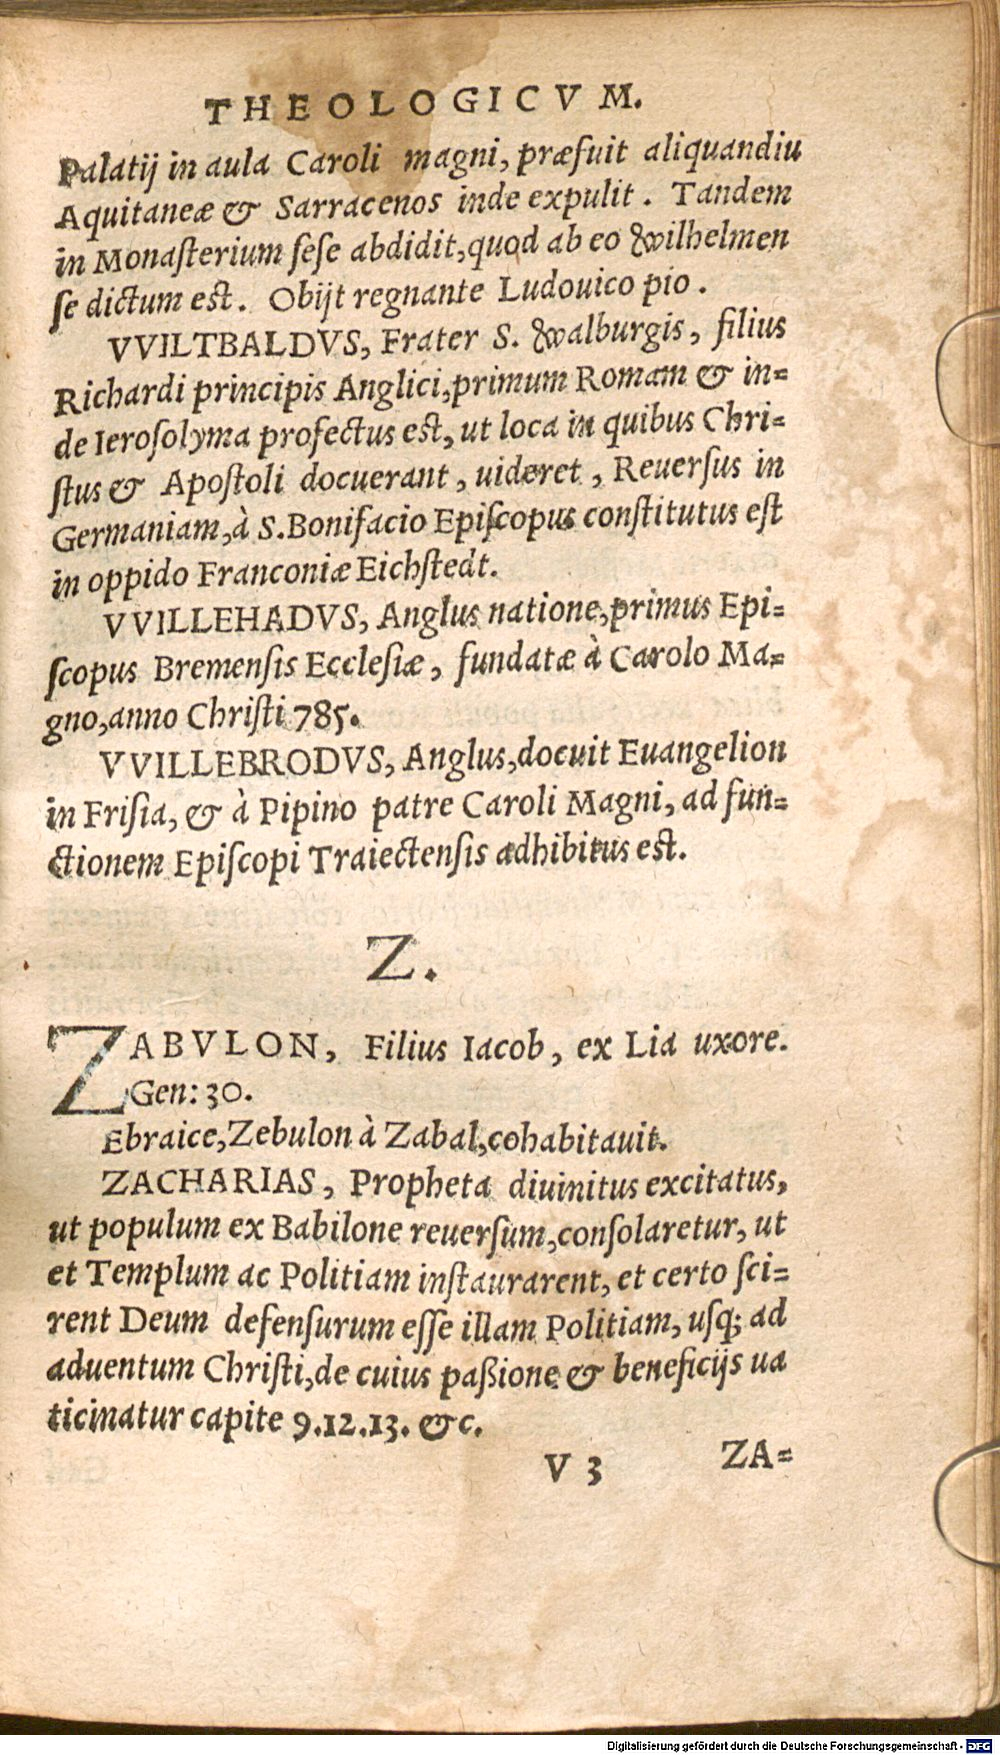 THEOLOGICVM.
Palatij in aula Caroli magni, præfuit aliquandiu
Aquitaneæ & Sarracenos inde expulit. Tandem
in Monaſterium ſeſe abdidit, quod ab eo wilhelmen
ſe dictum est. Obijt regnante Ludouico pio.
VVILTBALDVS, Frater S. walburgis, filius
Richardi principis Anglici, primum Romam & in=
de Ieroſolyma profectus eſt, ut loca in quibus Chri=
ſtus & Apoſtoli docuerant, uideret, Reuerſus in
Germaniam, à S. Bonifacio Epiſcopus conſtitutus eſt
in oppido Franconiæ Eichſtedt.
VVILLEHADVS, Anglus natione, primus Epi=
ſcopus Bremenſis Eccleſiæ, fundatæ à Carolo Ma=
gno, anno Chriſti 785.
VVILLEBRODVS, Anglus, docuit Euangelion
in Friſia, & à Pipino patre Caroli Magni, ad fun=
ctionem Epiſcopi Traiectenſis adhibitus eſt.
Z.
ZABVLON, Filius Iacob, ex Lia uxore.
Gen: 30.
Ebraice, Zebulon à Zabal, cohabitauit.
ZACHARIAS, Propheta diuinitus excitatus,
ut populum ex Babilone reuerſum, conſolaretur, ut
et Templum ac Politiam inſtaurarent, et certo ſci=
rent Deum defenſurum eſſe illam Politiam, uſq; ad
aduentum Chriſti, de cuius paßione & beneficijs ua
ticinatur capite 9.12.13. &c.
V 3 ZA=
Digitalisierung gefördert durch die Deutsche Forschungsgemeinschaft - DFG